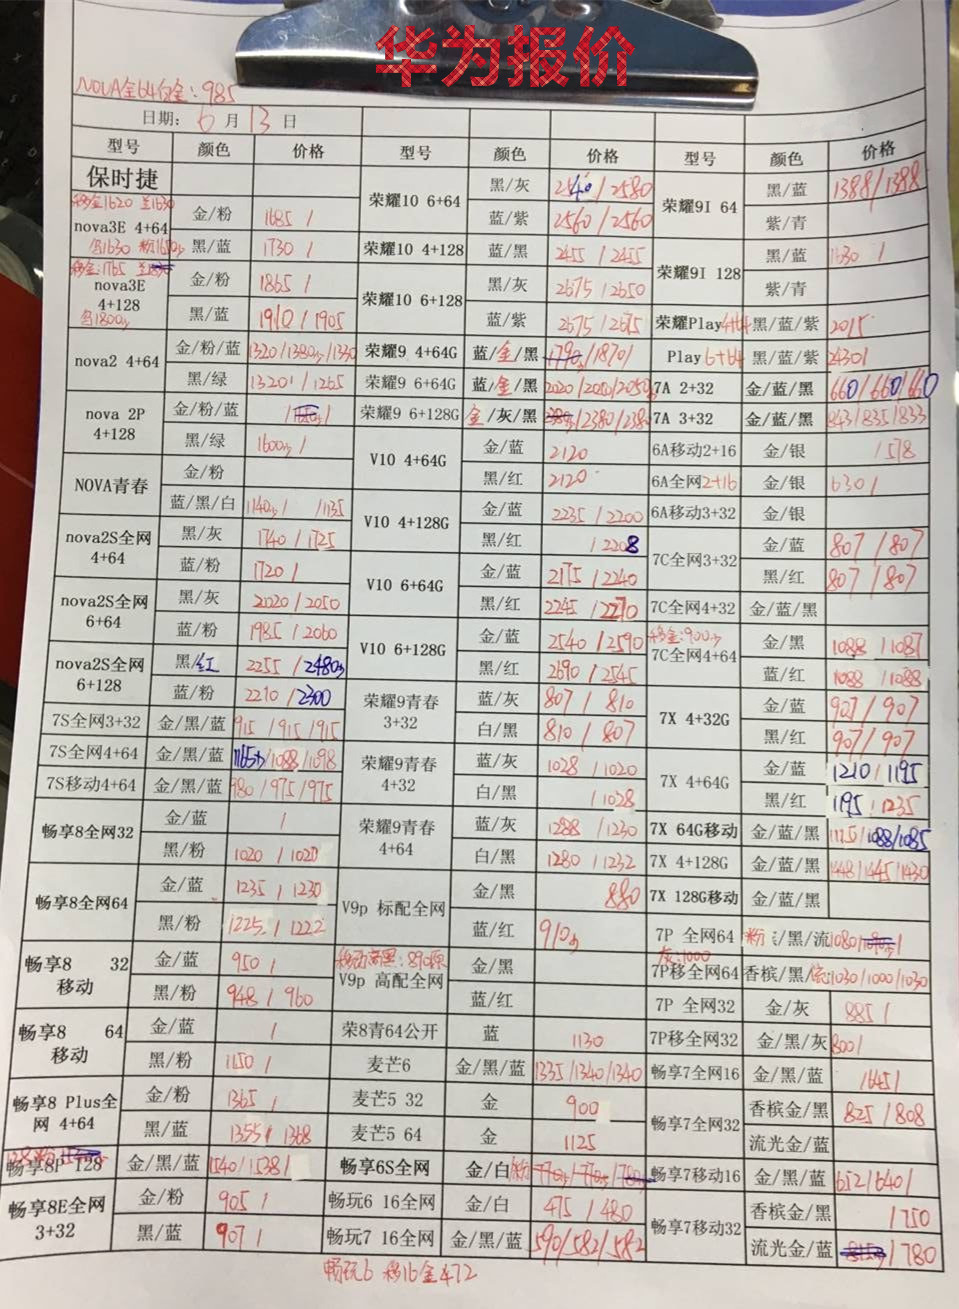 华为报价
NOVA全64白金:985
日期: 6月13日
型号 颜色 价格 型号 颜色 价格 型号 颜色 价格
保时捷
移金1620 兰1630
nova3E 4+64
金/粉 1685 /
黑/蓝 1730 /
nova3E 4+128
金/粉 1865 /
黑/蓝 1910 / 1905
nova2 4+64
金/粉/蓝
黑/绿 1320 / 1265
nova 2P 4+128
金/粉/蓝
黑/绿 1600 /
NOVA青春
金/粉
蓝/黑/白 1140 / /1135
nova2S全网 4+64
黑/灰 1740 / 1725
蓝/粉 1720 /
nova2S全网 6+64
黑/灰 2020 / 2050
蓝/粉 1985 / 2060
nova2S全网 6+128
黑/红 2255 / 2480
蓝/粉 2210 / 2300
7S全网3+32 金/黑/蓝 915 / 915 / 915
7S全网4+64 金/黑/蓝 1165/1088/1098
7S移动4+64 金/黑/蓝 980 / 975 / 975
畅享8全网32
金/蓝 /
黑/粉 1020 / 1020
畅享8全网64
金/蓝 1235 / 1230
黑/粉 1225 / 1222
畅享8 32 移动
金/蓝 950 /
黑/粉 948 / 960
畅享8 64 移动
金/蓝 /
黑/粉 1150 /
畅享8 Plus全网 4+64
金/粉 1365 /
黑/蓝 1355 / 1368
畅享8P 128 金/黑/蓝 1540 / 1538 /
畅享8E全网 3+32
金/粉 905 /
黑/蓝 907 /
荣耀10 6+64
黑/灰 2540 / 2580
蓝/紫 2560 / 2560
荣耀10 4+128 蓝/黑 2455 / 2455
荣耀10 6+128
黑/灰 2675 / 2650
蓝/紫 2675 / 2675
荣耀9 4+64G 蓝/金/黑 1790/1870/
荣耀9 6+64G 蓝/金/黑 2020 / 2050 / 2050
荣耀9 6+128G 金/灰/黑 /2380/2380
V10 4+64G
金/蓝 2120
黑/红 2120
V10 4+128G
金/蓝 2235 / 2200
黑/红 / 2208
V10 6+64G
金/蓝 2175 / 2240
黑/红 2245 / 2270
V10 6+128G
金/蓝 2540 / 2590
黑/红 2690 / 2545
荣耀9青春 3+32
蓝/灰 807 / 810
白/黑 810 / 807
荣耀9青春 4+32
蓝/灰 1028 / 1020
白/黑 / 1028
荣耀9青春 4+64
蓝/灰 1288 / 1230
白/黑 1280 / 1232
V9p 标配全网
金/黑 880
蓝/红 910
V9p 高配全网
金/黑
蓝/红
荣8青64公开 蓝 1130
麦芒6 金/黑/蓝 1335/1340/1340
麦芒5 32 金 900
麦芒5 64 金 1125
畅享6S全网 金/白/粉
畅玩6 16全网 金/白 475 / 480
畅玩7 16全网 金/黑/蓝 590/582/582
荣耀9I 64
黑/蓝 1388/1388
紫/青
荣耀9I 128
黑/蓝 1630 /
紫/青
荣耀Play 4+64 黑/蓝/紫 2015
Play 6+64 黑/蓝/紫 2430/
7A 2+32 金/蓝/黑 660/660/660
7A 3+32 金/蓝/黑 843/835/833
6A移动2+16 金/银 / 578
6A全网2+16 金/银 630 /
6A移动3+32 金/银
7C全网3+32
金/蓝 807 / 807
黑/红 807 / 807
7C全网4+32 金/蓝/黑
移金:900
7C全网4+64
金/黑 1088 / 1087
蓝/红 1088 / 1088
7X 4+32G
金/蓝 907 / 907
黑/红 907 / 907
7X 4+64G
金/蓝 1210 / 1195
黑/红 1195 / 1235
7X 64G移动 金/蓝/黑 1125/1088/1085
7X 4+128G 金/蓝/黑 1448/1445/1430
7X 128G移动 金/蓝/黑
7P 全网64 粉/黑/流 1080/
灰:1000
7P移全网64 香槟/黑/流 1030/1000/1030
7P 全网32 金/灰 885 /
7P移全网32 金/黑/灰 800 /
畅享7全网16 金/黑/蓝 /645/
畅享7全网32
香槟金/黑 825 / 808
流光金/蓝
畅享7移动16 金/黑/蓝 652/640/
畅享7移动32
香槟金/黑 / 750
流光金/蓝 / 780
畅玩6 移16金472